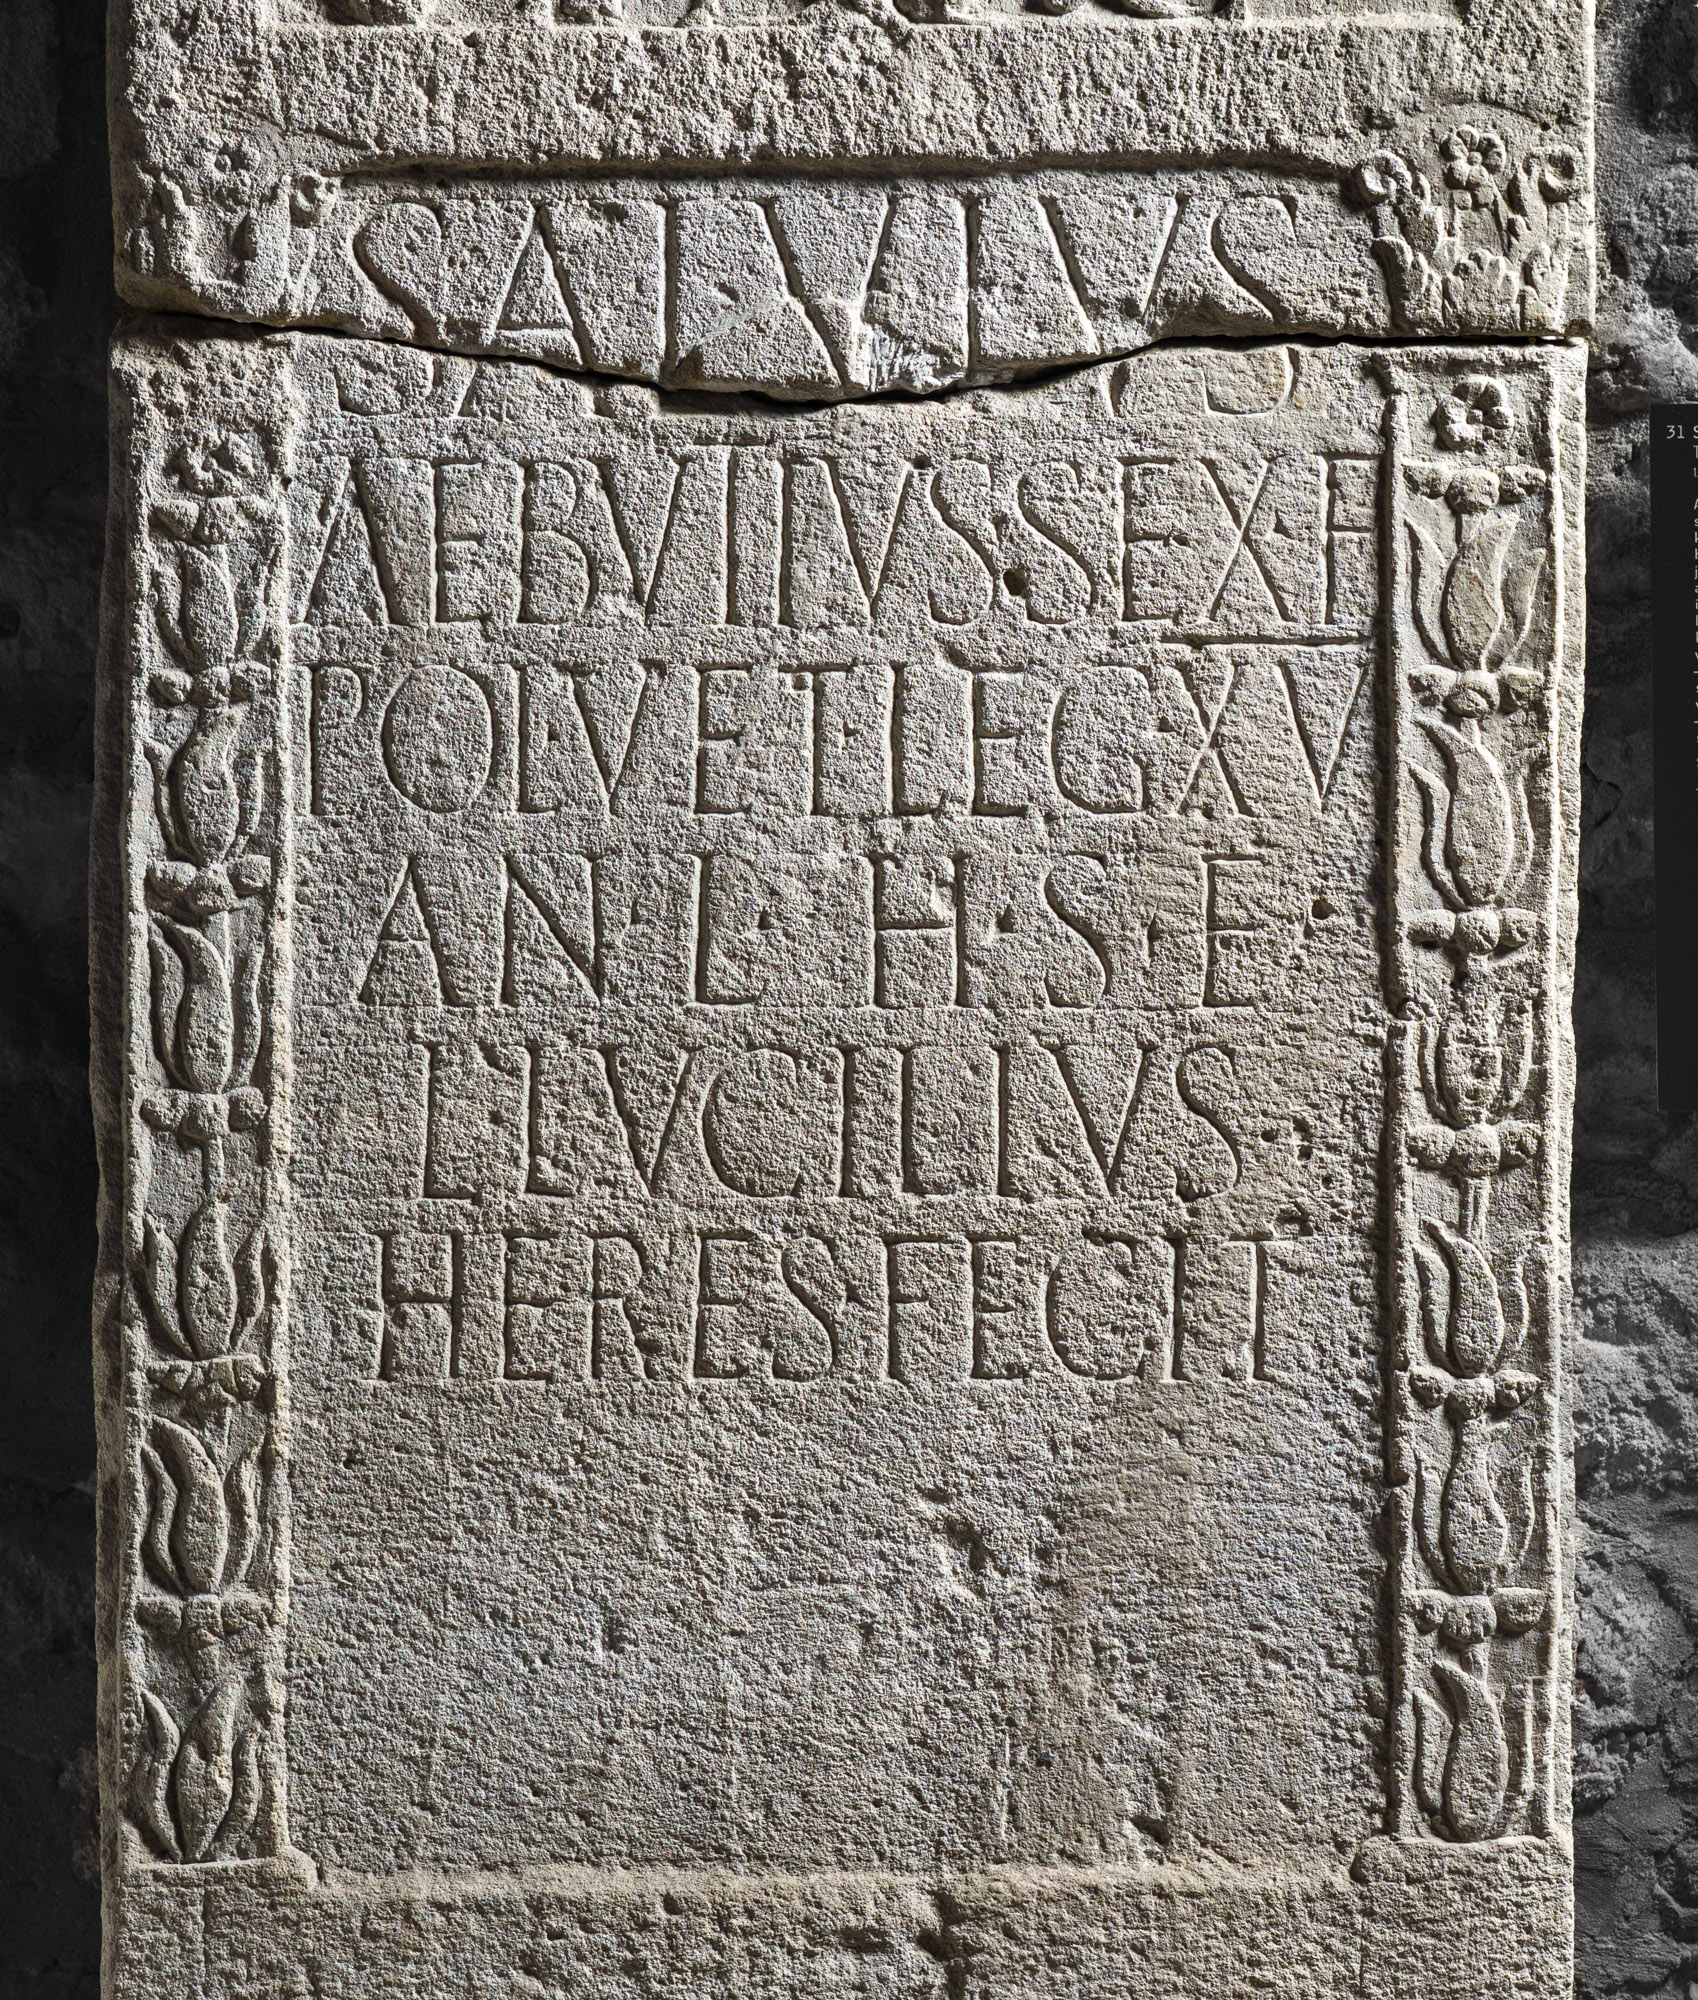 SALVIVS
AEBVTIVS·SEX·F
POL·VET·LEG·XV
AN·L·H·S·E·
L·LVCILIVS
HERES·FECIT
31